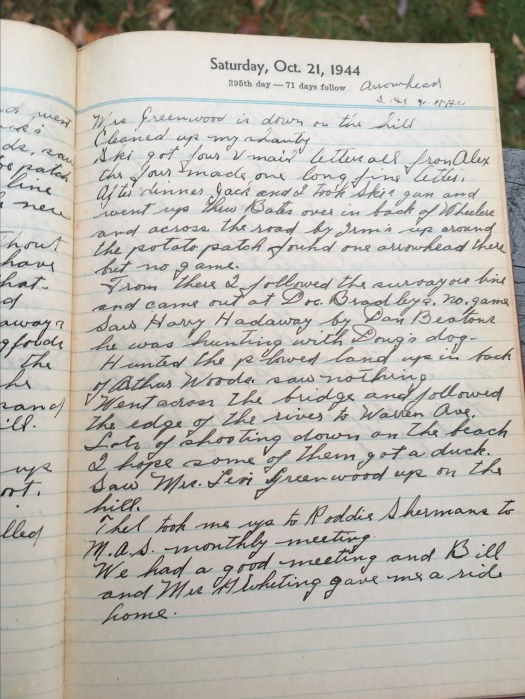 Saturday, Oct. 21, 1944
295th day — 71 days follow
Arrowhead
Mrs Greenwood is down on the hill
Cleaned up my shanty
Ski got four V mail letters all from Alex
the four made one long fine letter.
After dinner Jack and I took Skis gun and
went up thru Bates over in back of Wheelers
and across the road by Irms up around
the potato patch found one arrowhead there
but no game.
From there I followed the surveyors line
and came out at Doc. Bradleys. no. game
Saw Harry Hadaway by Dan Beatons
he was hunting with Doug's dog-
Hunted the plowed land up in back
of Arthur Woods. saw nothing
Went across the bridge and followed
the edge of the river to Warren Ave.
Lots of shooting down on the beach
I hope some of them got a duck.
Saw Mrs. Levi Greenwood up on the
hill.
Thel took me up to Roddie Shermans to
M.A.S. monthly meeting
We had a good meeting and Bill
and Mrs H Whiting gave me a ride
home.
went
saw
patch
line
new
thout
have
hat-
d
away
foods
the
he
and
ill.
up
oot.
lled